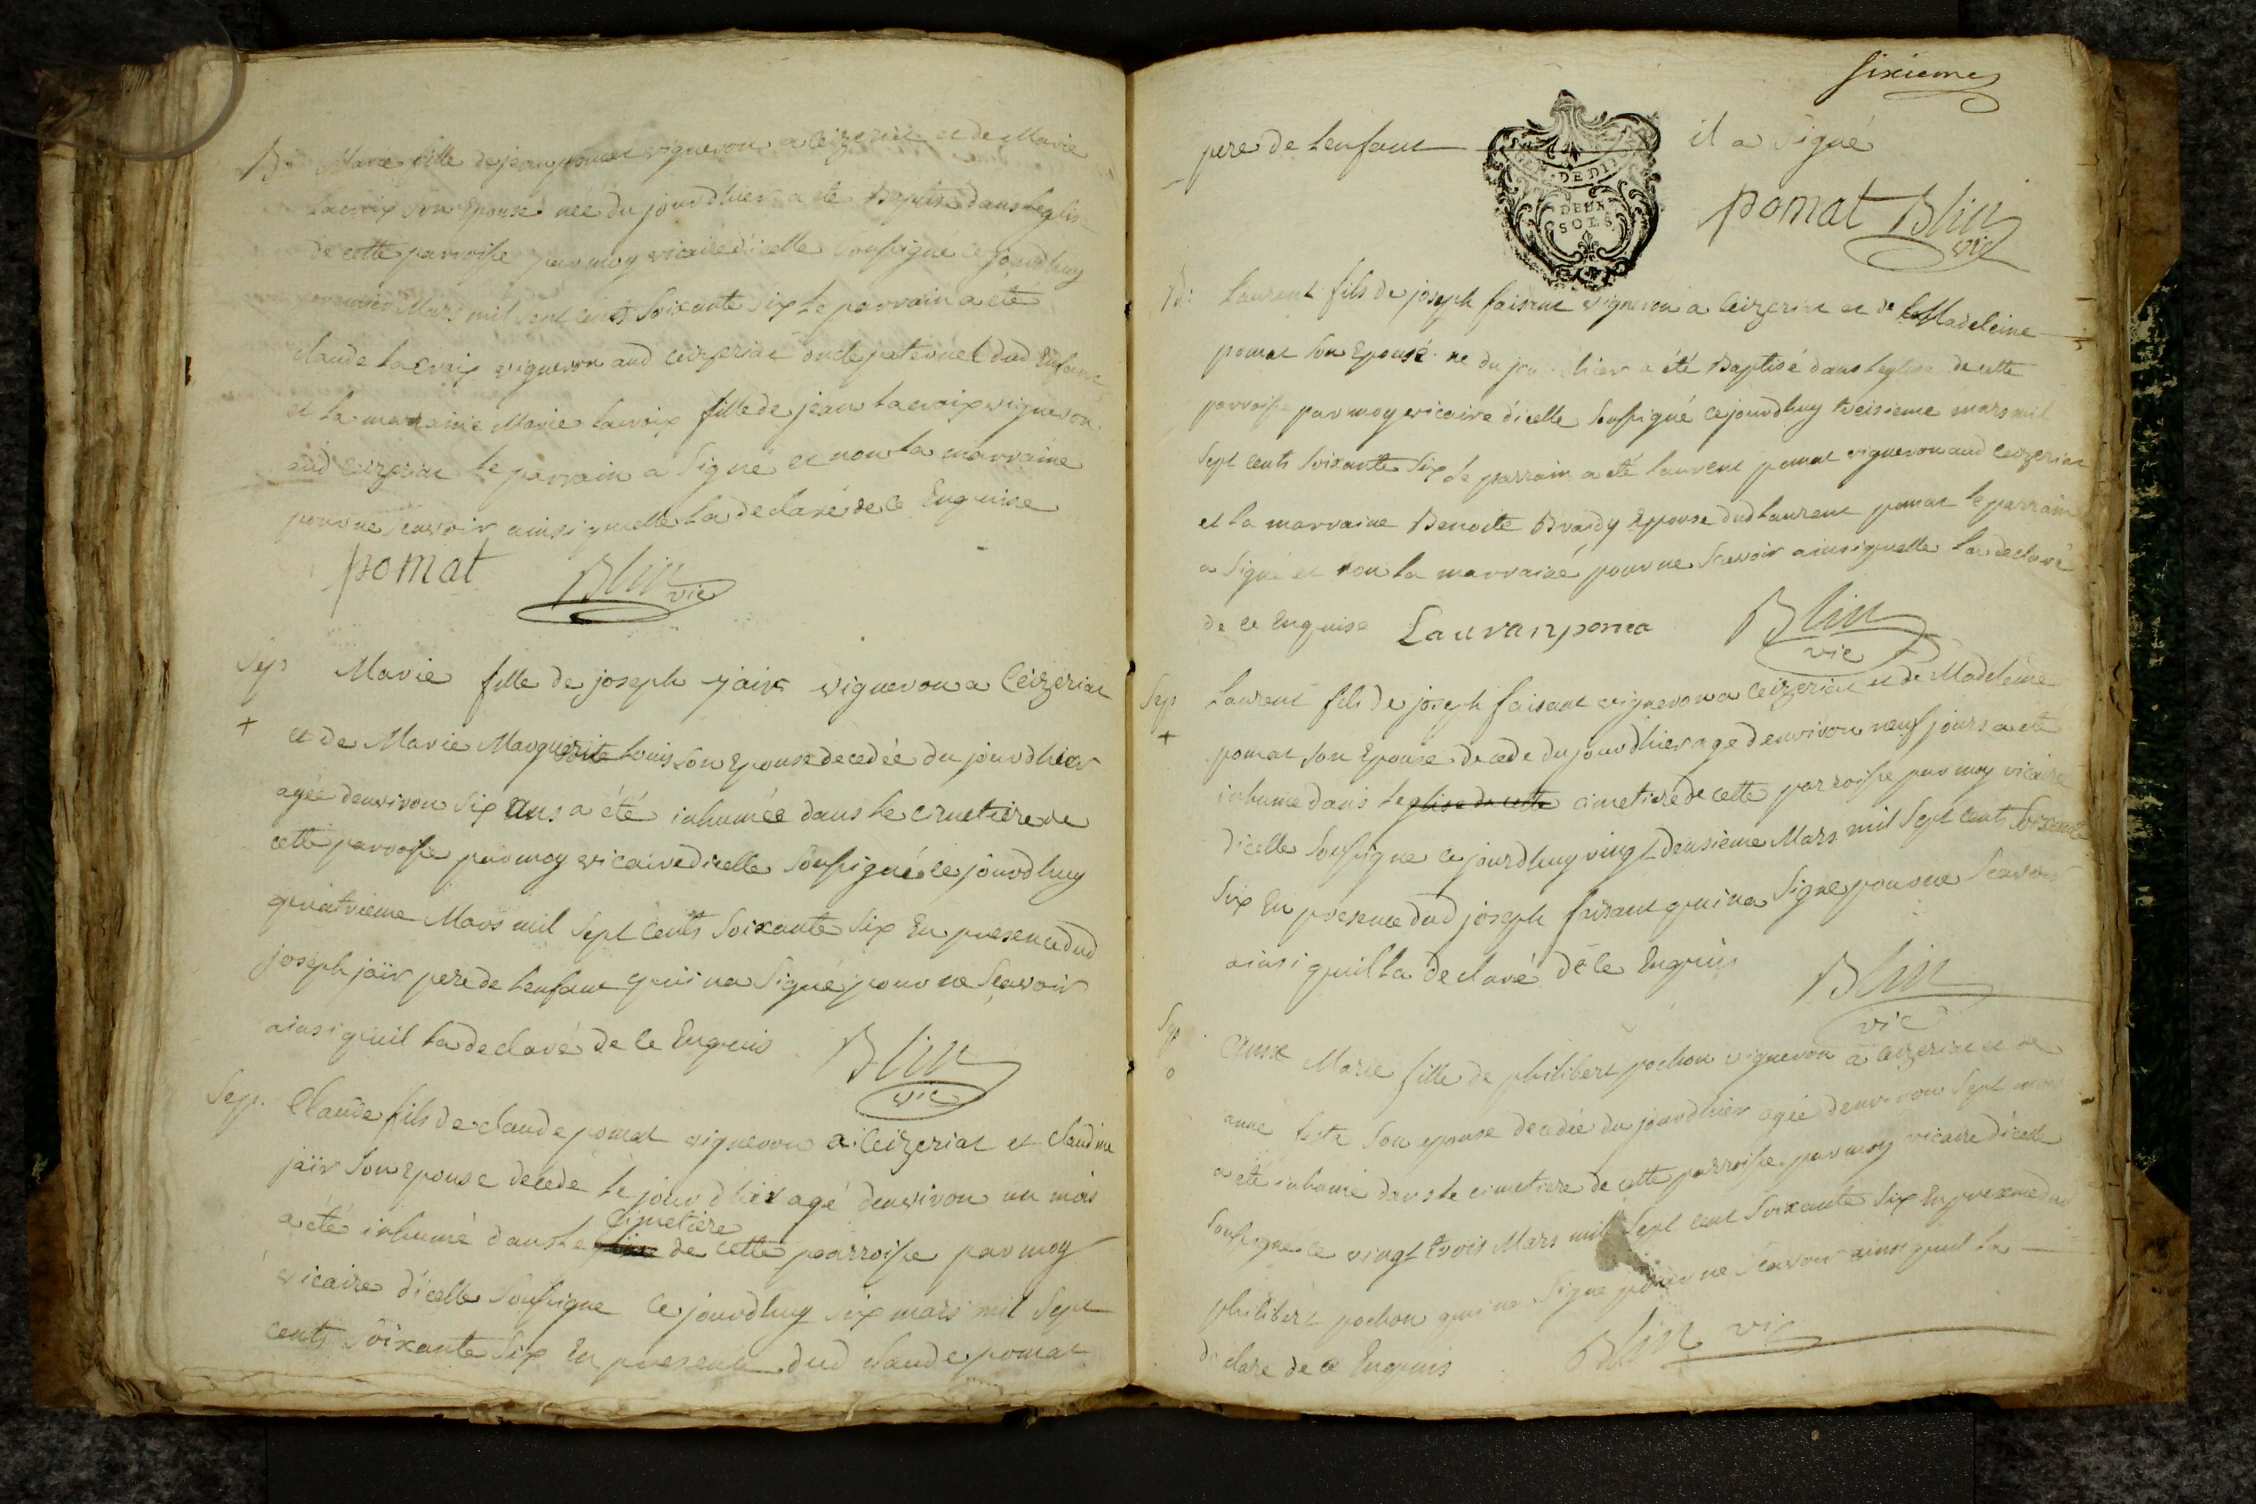 B: Marie fille de jean pomat vigneron a Ceizeriat et de Marie
Lacroix son Epouse née du jourdhier a été Baptisé dans leglise
de cette parroisse par moy vicaire dicelle soussigné ce jourdhuy
premier Mars mil sept cents soixante six le parrain a été
claude Lacroix vigneron aud Ceizeriat oncle paternel dud Enfant
et la marraine Marie Lacroix fille de jean Lacroix vigneron
aud Ceizeriat le parrain a signé et non la marraine
pour ne scavoir ainsi quelle la declaré de ce Enquise
pomat Blin vic
Sep Marie fille de joseph jair vigneron a Ceizeriat
+ et de Marie Marguerite Louis son Epouse decedée du jourdhier
agée denviron six ans a été inhumée dans le cimetiere de
cette parroisse par moy vicaire dicelle soussigné ce jourdhuy
quatrieme Mars mil sept cents soixante six En presence dud
joseph jaïr pere de lenfant qui na signé pour ne scavoir
ainsi quil la declaré de ce Enquis Blin vic
Sep. Claude fils de claude pomat vigneron a Ceizeriat et claudine
jaïr son epouse decede le jour dhier agé denviron un mois
cimetiere
a été inhumé dans le de cette parroisse par moy
vicaire dicelle soussigne ce jourdhuy six mars mil sept
cents soixante six En presence dud claude pomat
sixieme
pere de lenfant il a signé
GEN. DE DIJ
DEUX SOLS
pomat Blin vic
B: Laurent fils de joseph faisant vigneron a Ceizeriat et de Madeleine
pomat son Epouse né du jourdhier a été Baptisé dans leglise de cette
parroisse par moy vicaire dicelle soussigné ce jourdhuy treisieme mars mil
sept cents soixante six le parrain a été laurent pomat vigneron aud Ceizeriat
et la marraine Benoite Brardy Epouse dud laurent pomat le parrain
a signé et non la marraine pour ne scavoir ainsi quelle la declaré
de ce Enquise Lauvan poma Blin vic
Sep Laurent fils de joseph faisant vigneron a Ceizeriat et de Madeleine
+ pomat son Epouse decede du jourdhier age denviron neuf jours a eté
inhume dans leglise de cette cimetiere de cette parroisse par moy vicaire
dicelle soussigne ce jourdhuy vingt deusieme Mars mil sept cents soixante
six En presence dud joseph faisant qui na signe pour ne scavoir
ainsi quil la declaré de ce Enquis Blin vic
Sep Anne Marie fille de philibert pochon vigneron a Ceizeriat et de
o anne son epouse decedée du jourdhier agée denviron sept mois
a eté inhumé dans le cimetiere de cette parroisse par moy vicaire dicelle
soussigne ce vingt trois Mars mil sept cent soixante six En presence dud
philibert pochon qui na signe pour ne scavoir ainsi quil la
declare de ce Enquis Blin vic